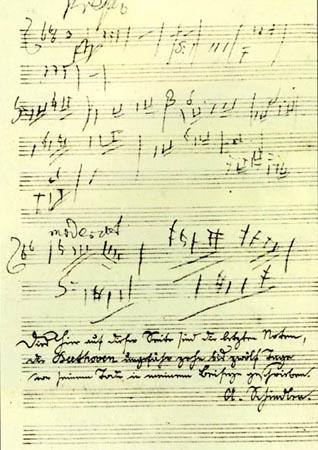 Presto
moderat
Dies hier auf dieser Seite sind die letzten Noten,
die Beethoven ungefähr zehn bis zwölf Tage
vor seinem Tode in meinem Beiseyn geschrieben.
A. Schindler.